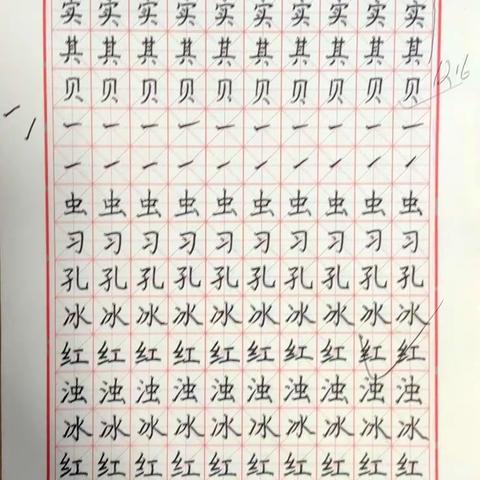 实 实 实 实 实 实 实 实 实 实
其 其 其 其 其 其 其 其 其 其
贝 贝 贝 贝 贝 贝 贝 贝 贝 贝
虫 虫 虫 虫 虫 虫 虫 虫 虫 虫
习 习 习 习 习 习 习 习 习 习
孔 孔 孔 孔 孔 孔 孔 孔 孔 孔
冰 冰 冰 冰 冰 冰 冰 冰 冰 冰
红 红 红 红 红 红 红 红 红 红
浊 浊 浊 浊 浊 浊 浊 浊 浊 浊
冰 冰 冰 冰 冰 冰 冰 冰 冰 冰
红 红 红 红 红 红 红 红 红 红